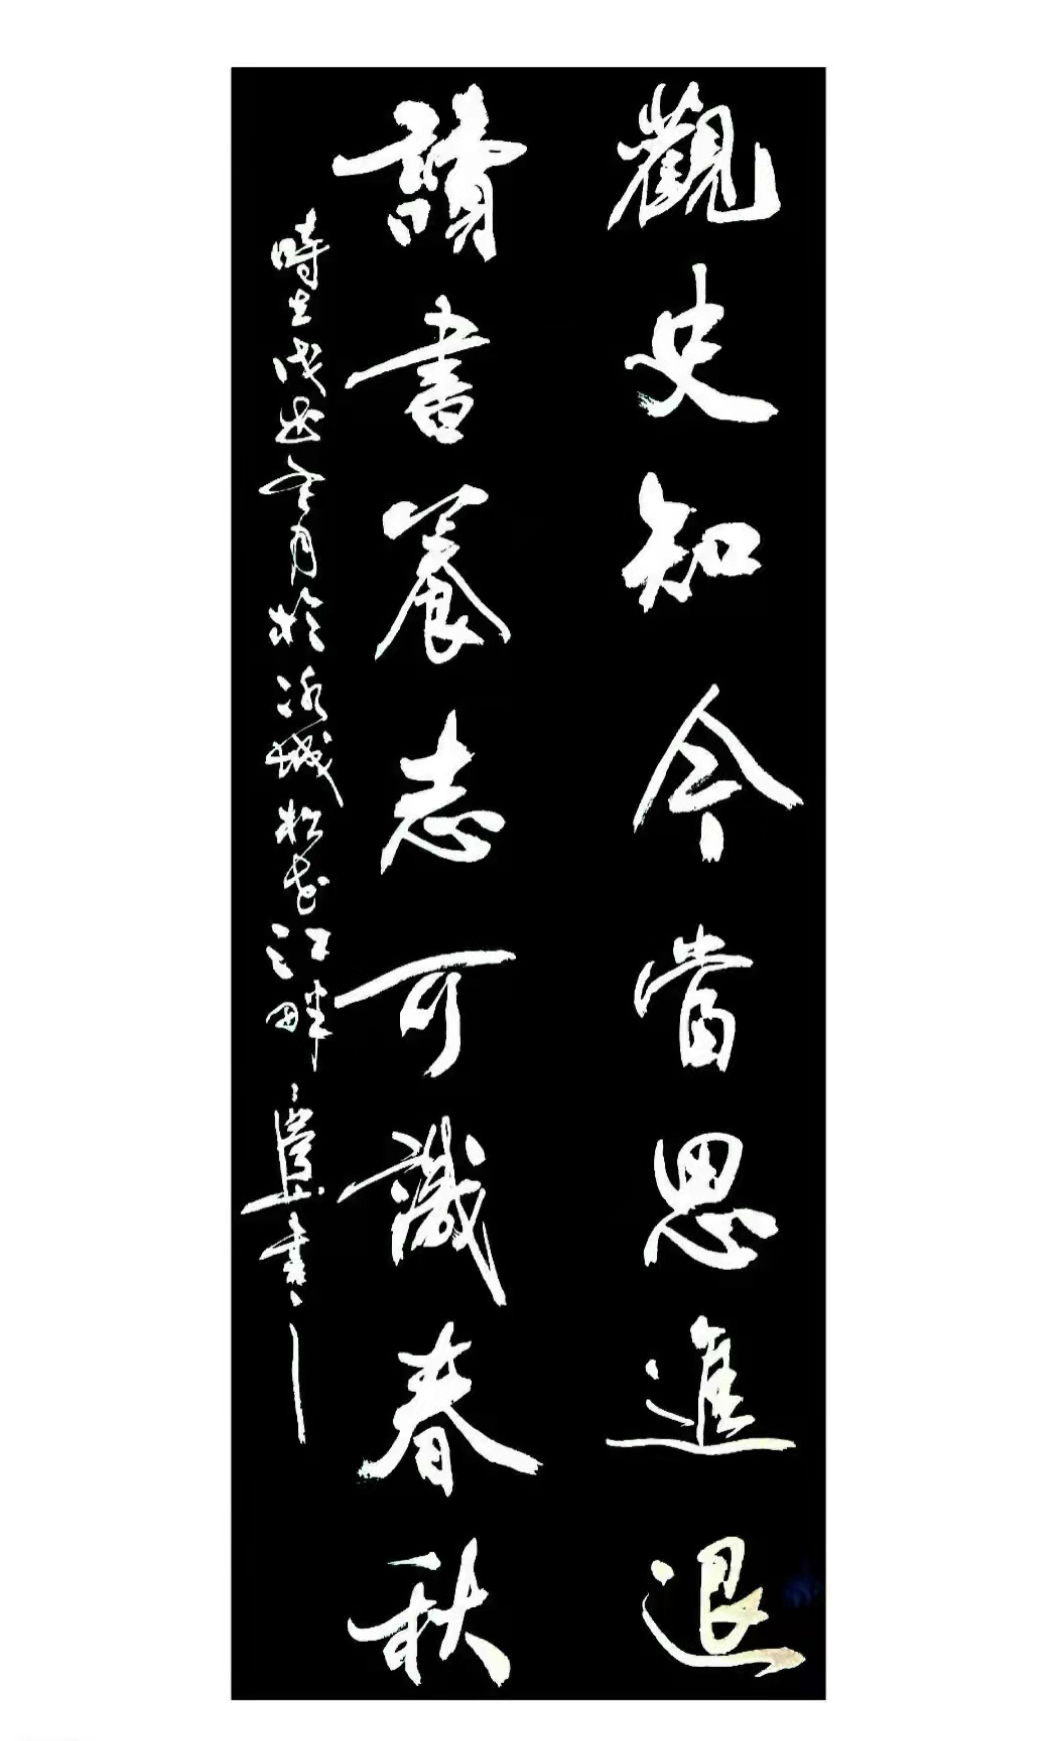 觀史知今當思進退
讀書養志可識春秋
時在戊戌年月於冰城松花江畔
書